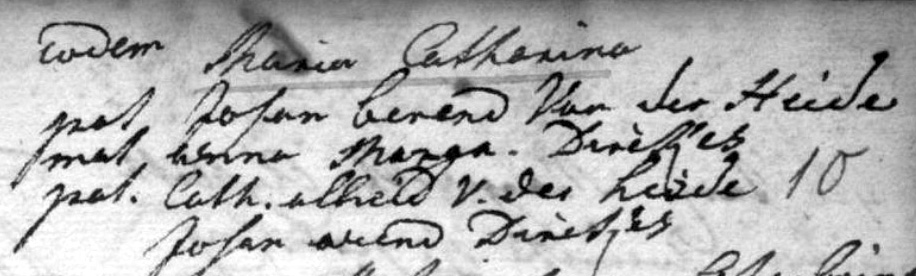 eodem Maria Catharina
pat Johan berend Van der Heide
mat anna Marga.
pat. Cath. alheid V. der heide 10
Johan arend